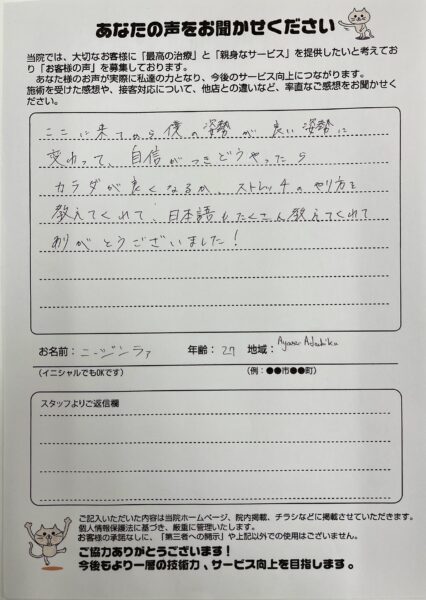 あなたの声をお聞かせください
当院では、大切なお客様に「最高の治療」と「親身なサービス」を提供したいと考えてお
り「お客様の声」を募集しております。
あなた様のお声が実際に私達の力となり、今後のサービス向上につながります。
施術を受けた感想や、接客対応について、他店との違いなど、率直なご感想をお聞かせく
ださい。
ここに来てから僕の姿勢が良い姿勢に
変わって、自信がつきどうやったら
カラダが良くなるか、ストレッチのやり方を
教えてくれて、日本語もたくさん教えてくれて
ありがとうございました!
お名前:ニージンラァ 年齢:27 地域: Ayase Adachiku
(イニシャルでもOKです) (例:●●市●●町)
スタッフよりご返信欄
ご記入いただいた内容は当院ホームページ、院内掲載、チラシなどに掲載させていただきます。
個人情報保護法に基づき、厳重に管理いたします。
お客様の承諾なしに、「第三者への開示」や上記以外での使用はございません。
ご協力ありがとうございます!
今後もより一層の技術力、サービス向上を目指します。